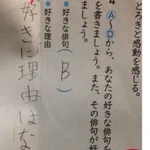 とろき」と感動を感じる。
4 A~Dから、あなたの好きな俳句
を書きましょう。また、その俳句が好
好きな俳句
( B )
好きな理由
好きに理由はな